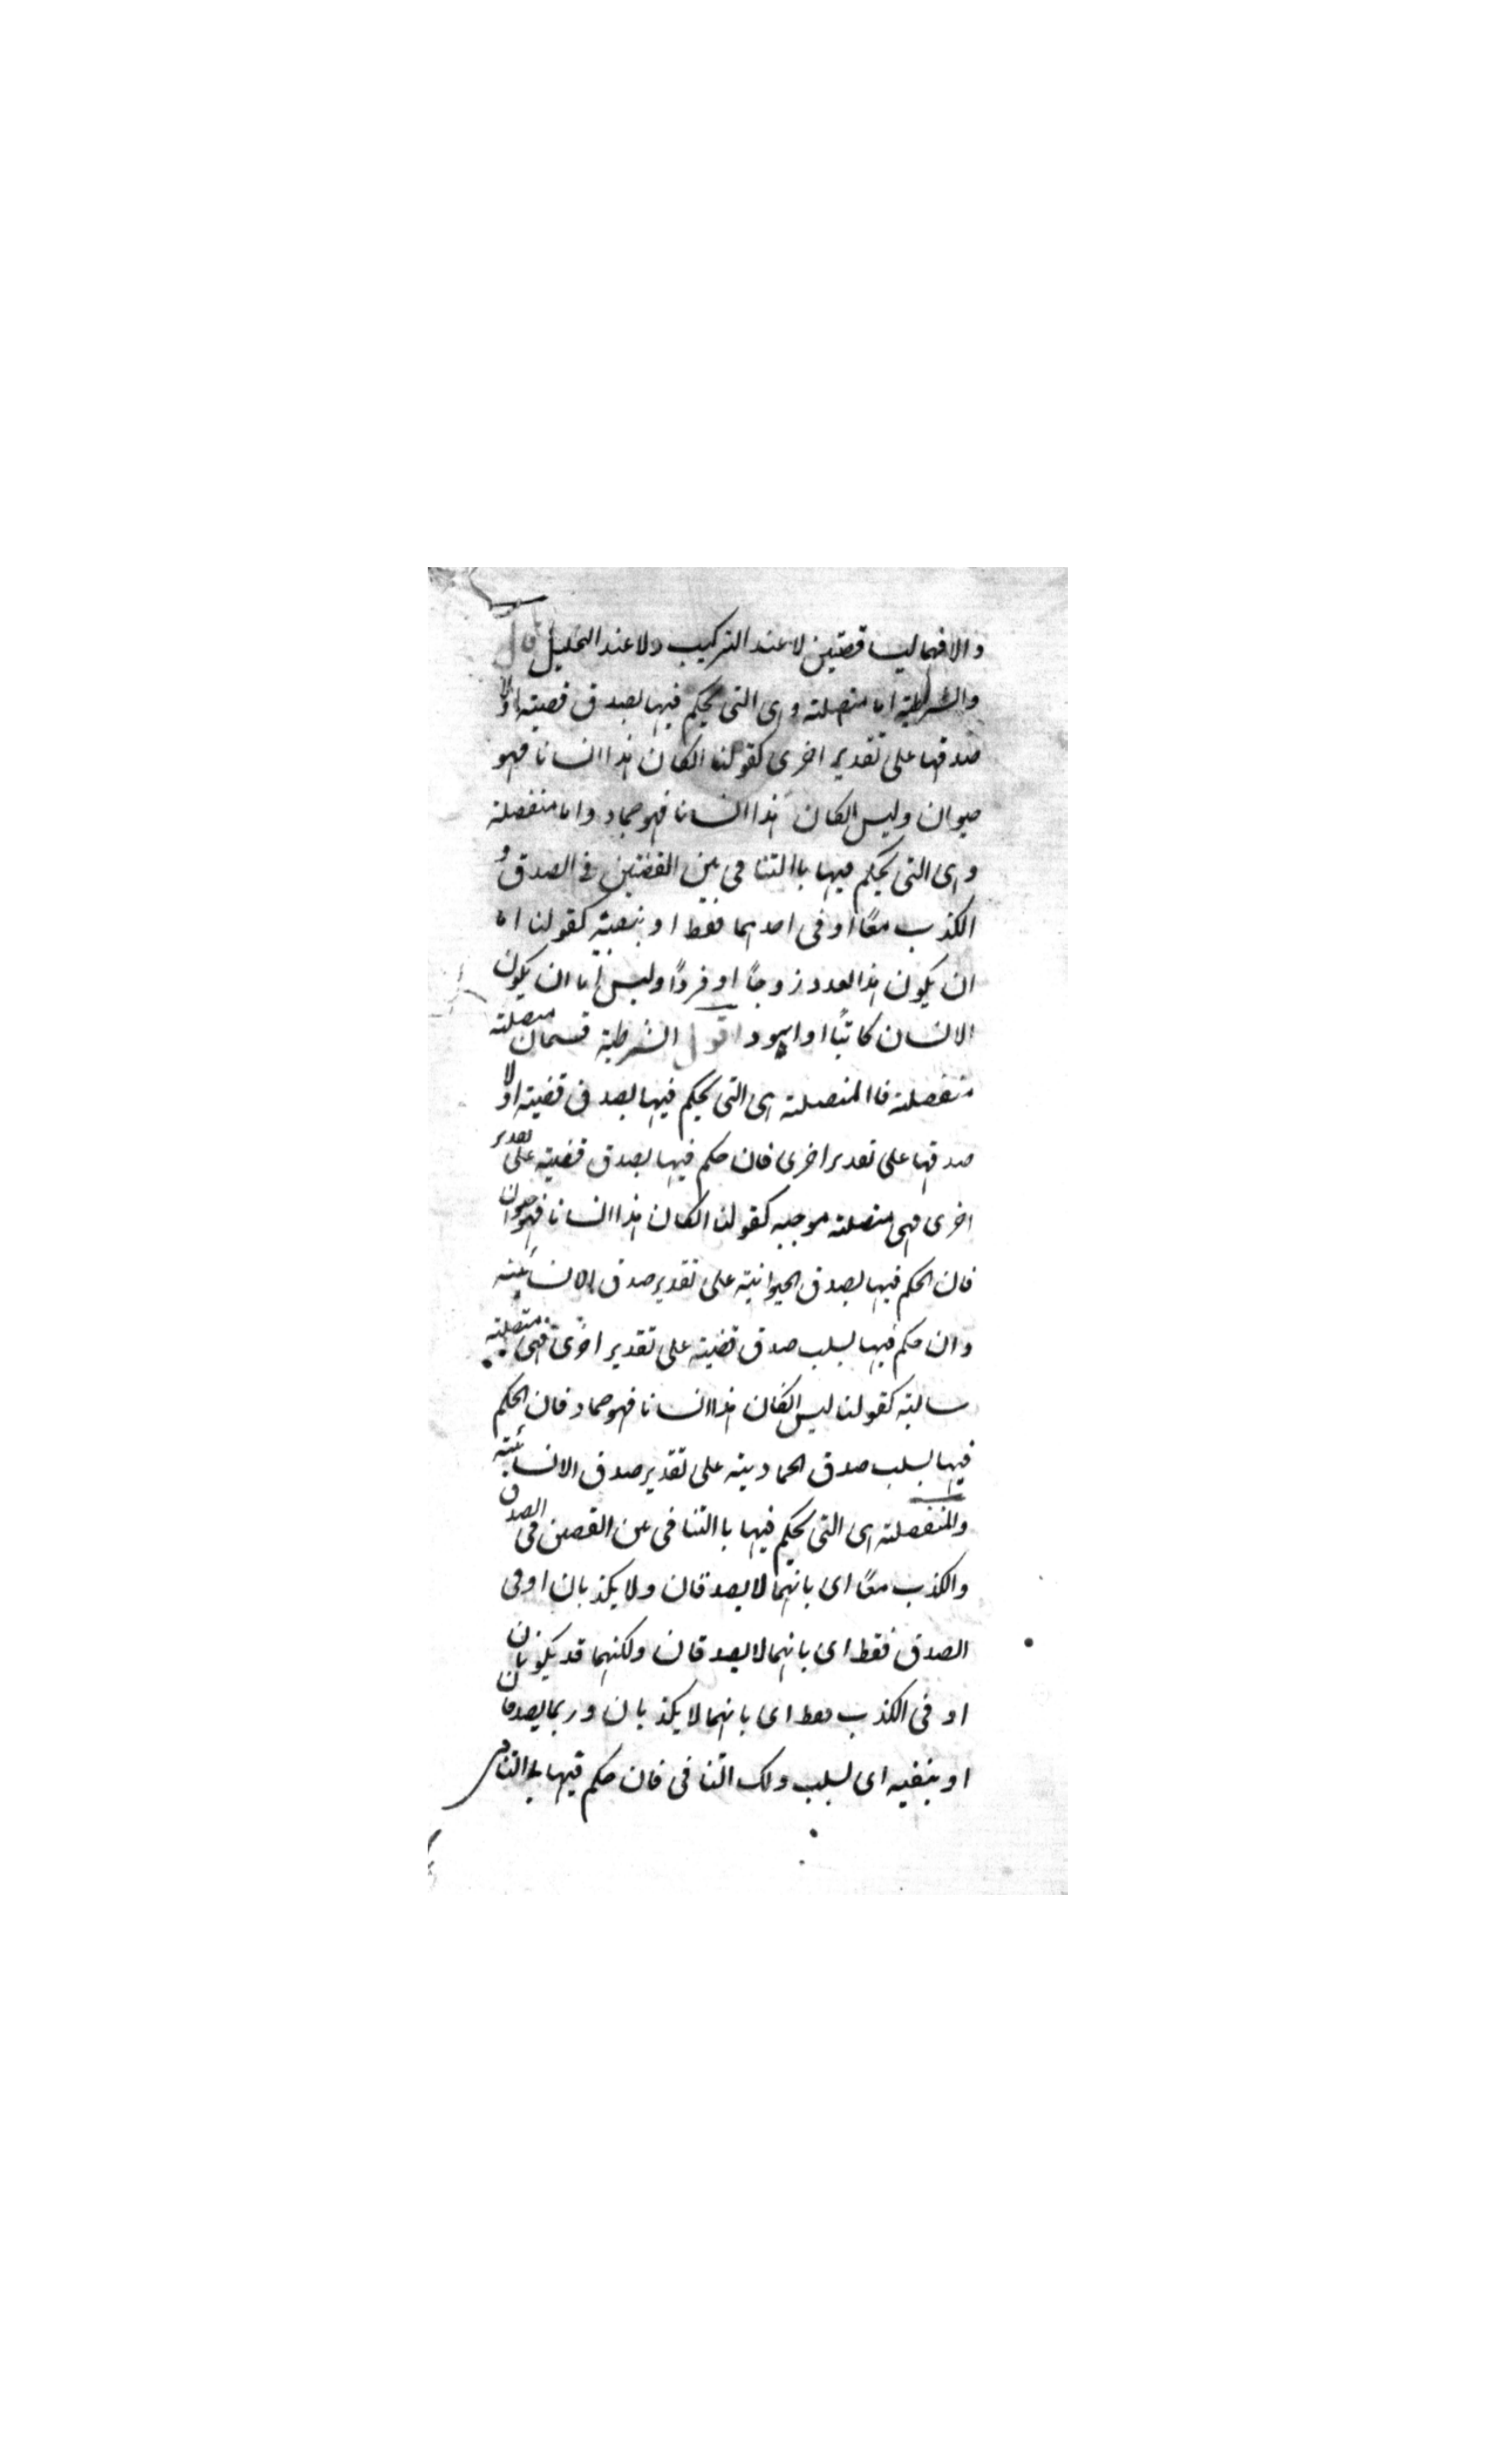 والا فهما ليسا قضيتين لا عند التركيب ولا عند التحليل قال
والشرطية اما متصلة وهى التى يحكم فيها بصدق قضية او لا
صدقها على تقدير اخرى كقولنا انكان هذا انسانا فهو
حيوان وليس انكان هذا انسانا فهو جماد واما منفصلة
وهى التى يحكم فيها باالتنافى بين القضيتين فى الصدق و
الكذب معًا او فى احدهما فقط او بنفيه كقولنا اما
ان يكون هذا العدد زوجًا او فردًا وليس اما ان يكون
الانسان كاتبًا او اسود اقول الشرطية قسمان متصلة
منفصلة فاالمتصلة هى التى يحكم فيها بصدق قضية او لا
صدقها على تقدير اخرى فان حكم فيها بصدق قضية على تقدير
اخرى فهى متصلة موجبه كقولنا انكان هذا انسانا فهو حيوان
فان الحكم فيها بصدق الحيوانية على تقدير صدق الانسانية
وان حكم فيها بسلب صدق قضية على تقدير اخرى فهى متصلة
سالبة كقولنا ليس انكان هذا انسانا فهو جماد فان الحكم
فيها بسلب صدق الجمادية على تقدير صدق الانسانية
والمنفصلة هى التى يحكم فيها باالتنافى بين القضيتين فى الصدق
والكذب معًا اى بانهما لا يصدقان ولا يكذبان او فى
الصدق فقط اى بانهما لا يصدقان ولكنهما قد يكذبان
او فى الكذب فقط اى بانهما لا يكذبان وربما يصدقان
او بنفيه اى بسلب ذلك التنافى فان حكم فيها باالتنافى